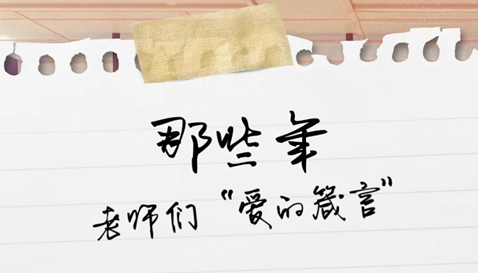 那些年
老师们“爱的箴言”